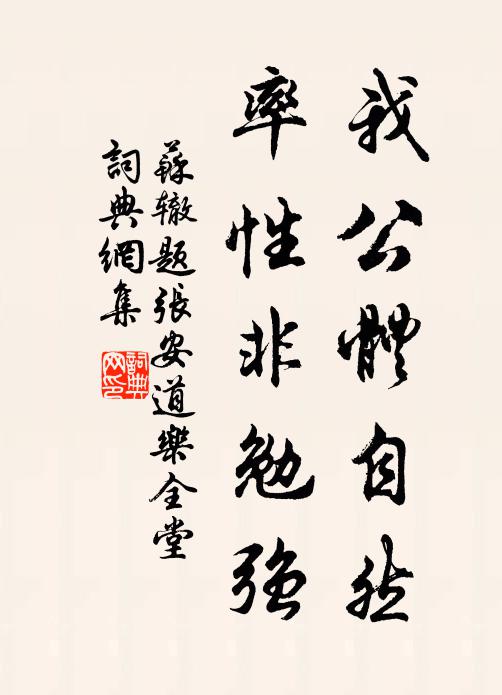 我公體自然
率性非勉強
蘇轍題張安道樂全堂
詞典網集
詞典網印